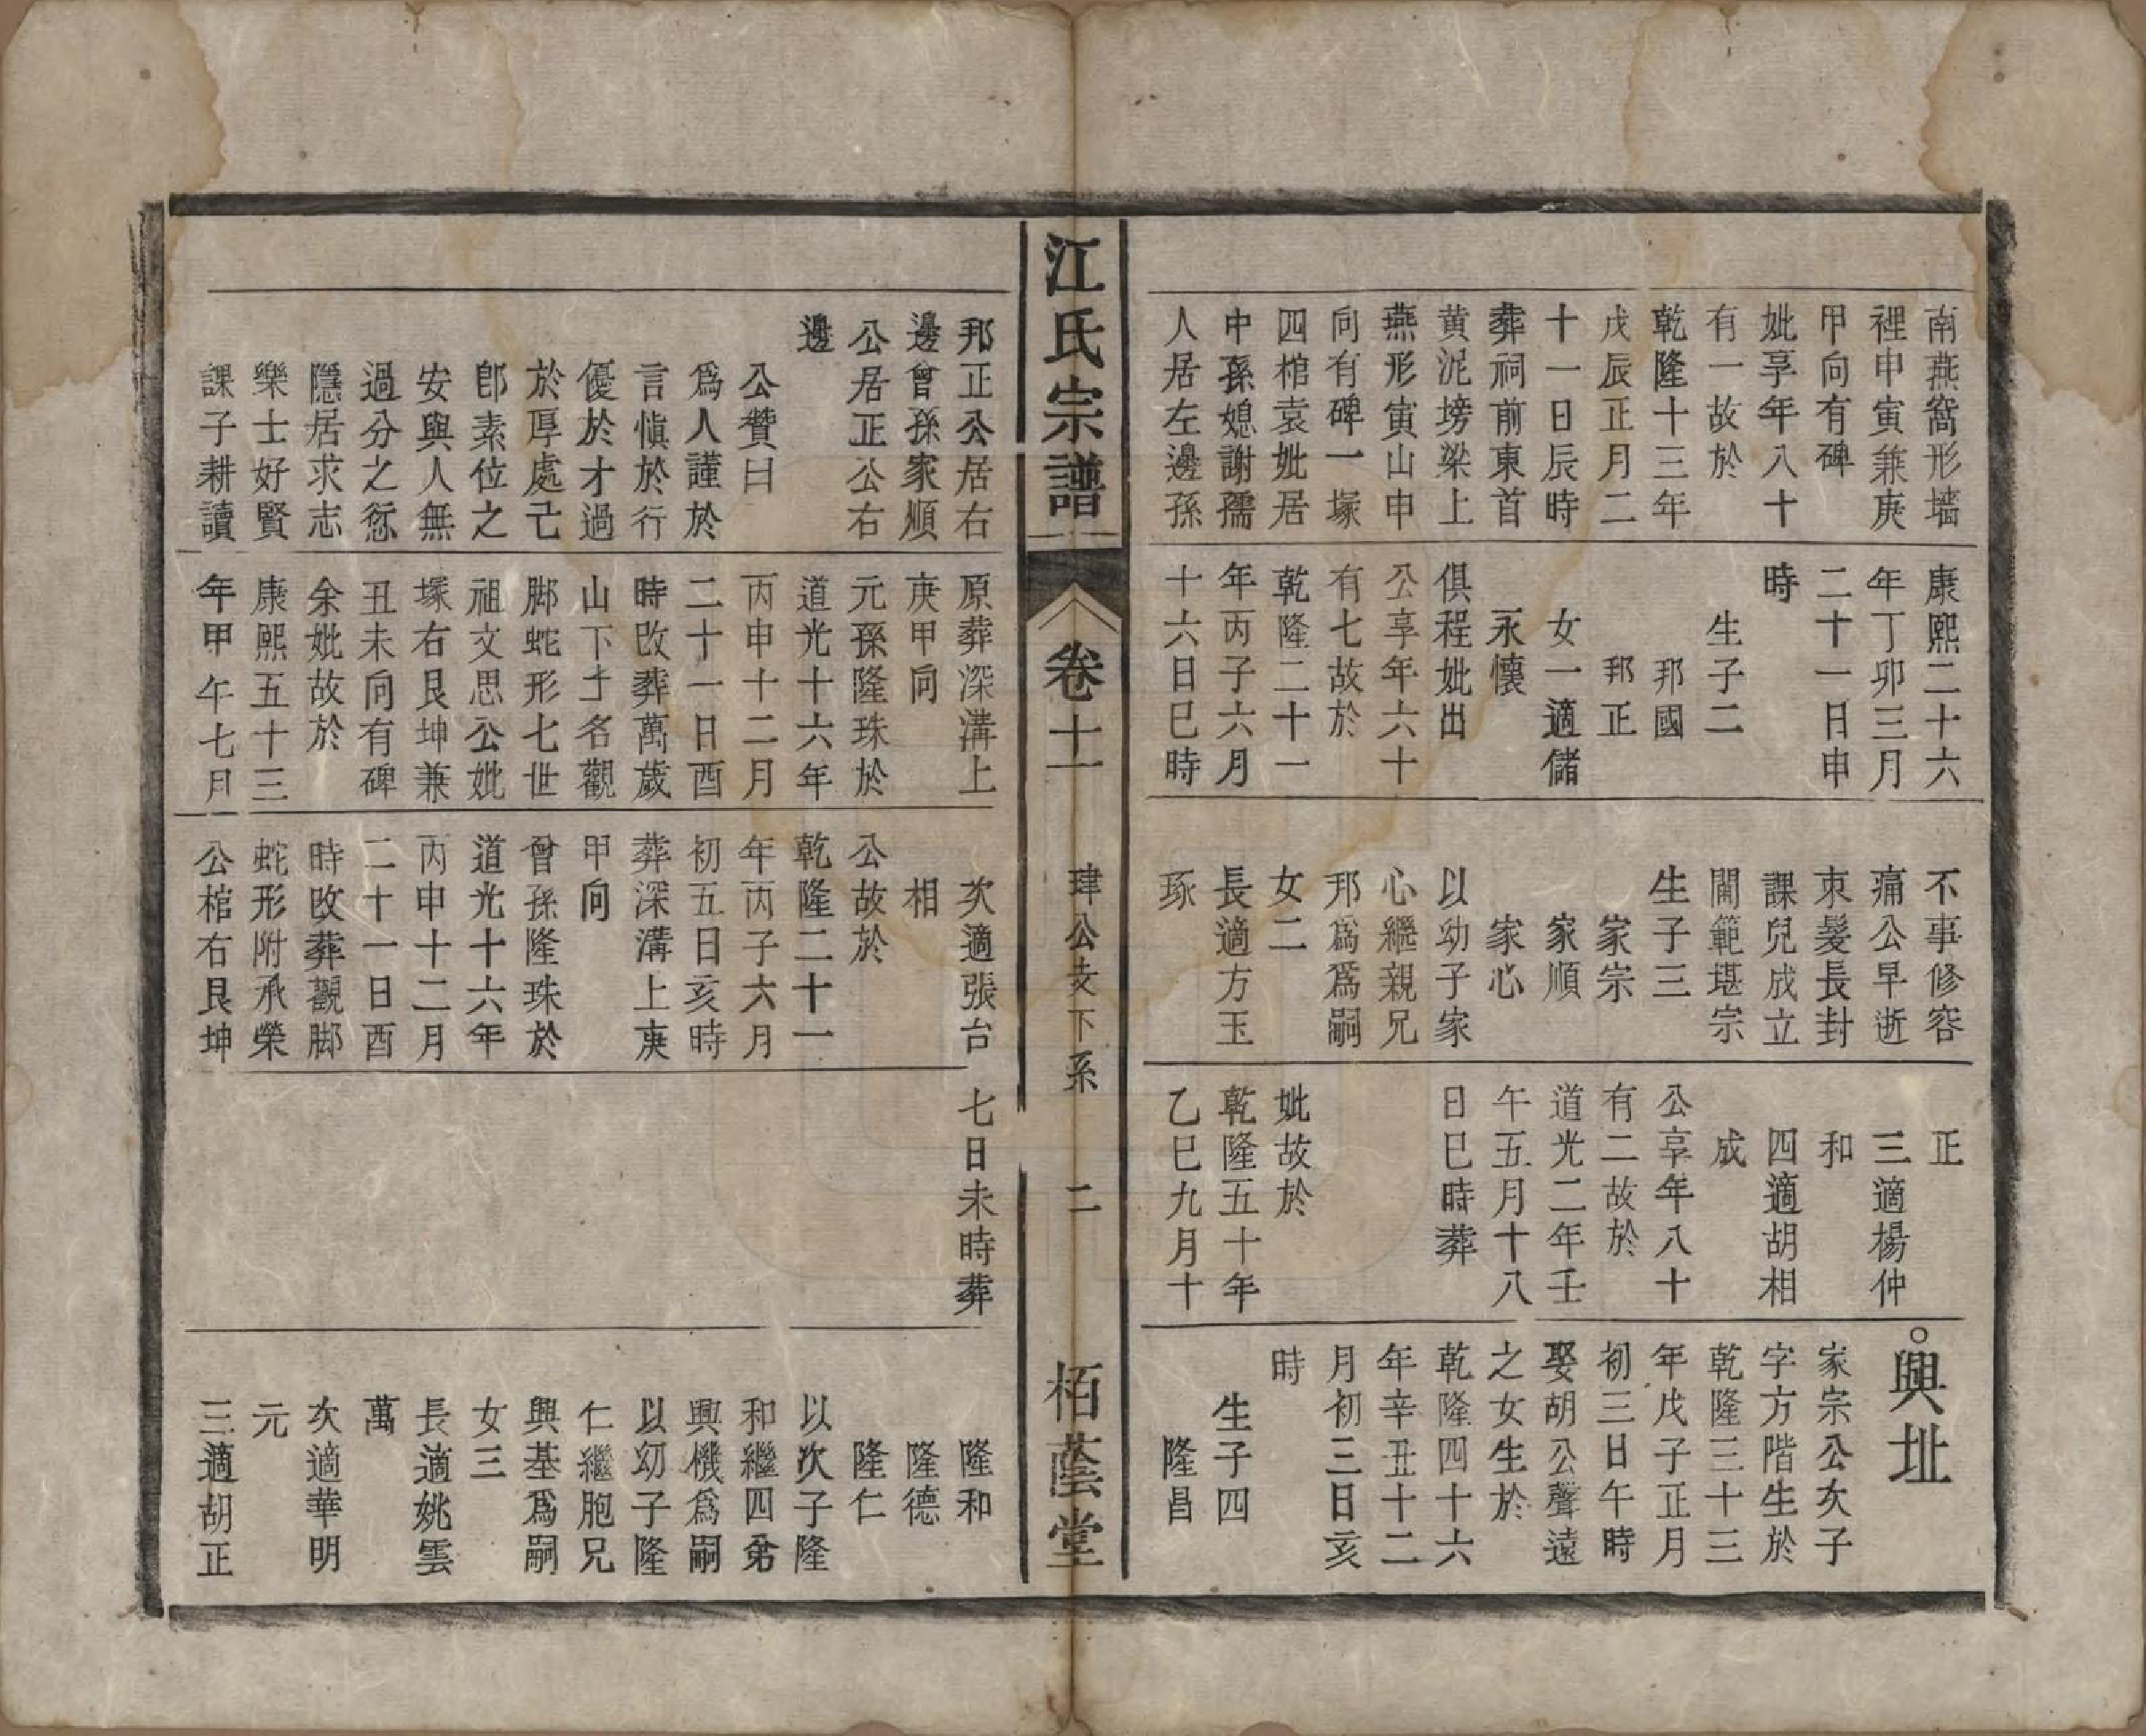 南燕窩形墻
裡申寅兼庚
甲向有碑
妣享年八十
有一故於
乾隆十三年
戊辰正月二
十一日辰時
葬祠前東首
黄泥塝梁上
燕形寅山申
向有碑一塚
四棺袁妣居
中孫媳謝孺
人居左邊孫
康熙二十六
年丁卯三月
二十一日申
時
生子二
邦國
邦正
女一適儲
永懷
俱程妣出
公享年六十
有七故於
乾隆二十一
年丙子六月
十六日巳時
不事修容
痛公早逝
朿髮長封
課兒成立
閫範堪宗
生子三
家宗
家順
家心
以幼子家
心繼親兄
邦爲爲嗣
女二
長適方玉
琢
正
三適楊仲
和
四適胡相
成
公享年八十
有二故於
道光二年壬
午五月十八
日巳時葬
妣故於
乾隆五十年
乙巳九月十
○興址
家宗公次子
字方階生於
乾隆三十三
年戊子正月
初三日午時
娶胡公聲遠
之女生於
乾隆四十六
年辛丑十二
月初三日亥
時
生子四
隆昌
江氏宗譜
卷十一
肂公支下系
二
栢蔭堂
邦正公居右
邊曾孫家順
公居正公右
邊
公贊曰
爲人謹於
言愼於行
優於才過
於厚處己
卽素位之
安與人無
過分之愆
隱居求志
樂士好賢
課子耕讀
原葬深溝上
庚甲向
元孫隆珠於
道光十六年
丙申十二月
二十一日酉
時改葬萬歲
山下土名觀
脚蛇形七世
祖文思公妣
塚右艮坤兼
丑未向有碑
余妣故於
康熙五十三
年甲午七月
次適張台
相
公故於
乾隆二十一
年丙子六月
初五日亥時
葬深溝上庚
甲向
曾孫隆珠於
道光十六年
丙申十二月
二十一日酉
時改葬觀脚
蛇形附承榮
公棺右艮坤
七日未時葬
隆和
隆德
隆仁
以次子隆
和繼四弟
興機爲嗣
以幼子隆
仁繼胞兄
興基爲嗣
女三
長適姚雲
萬
次適華明
元
三適胡正